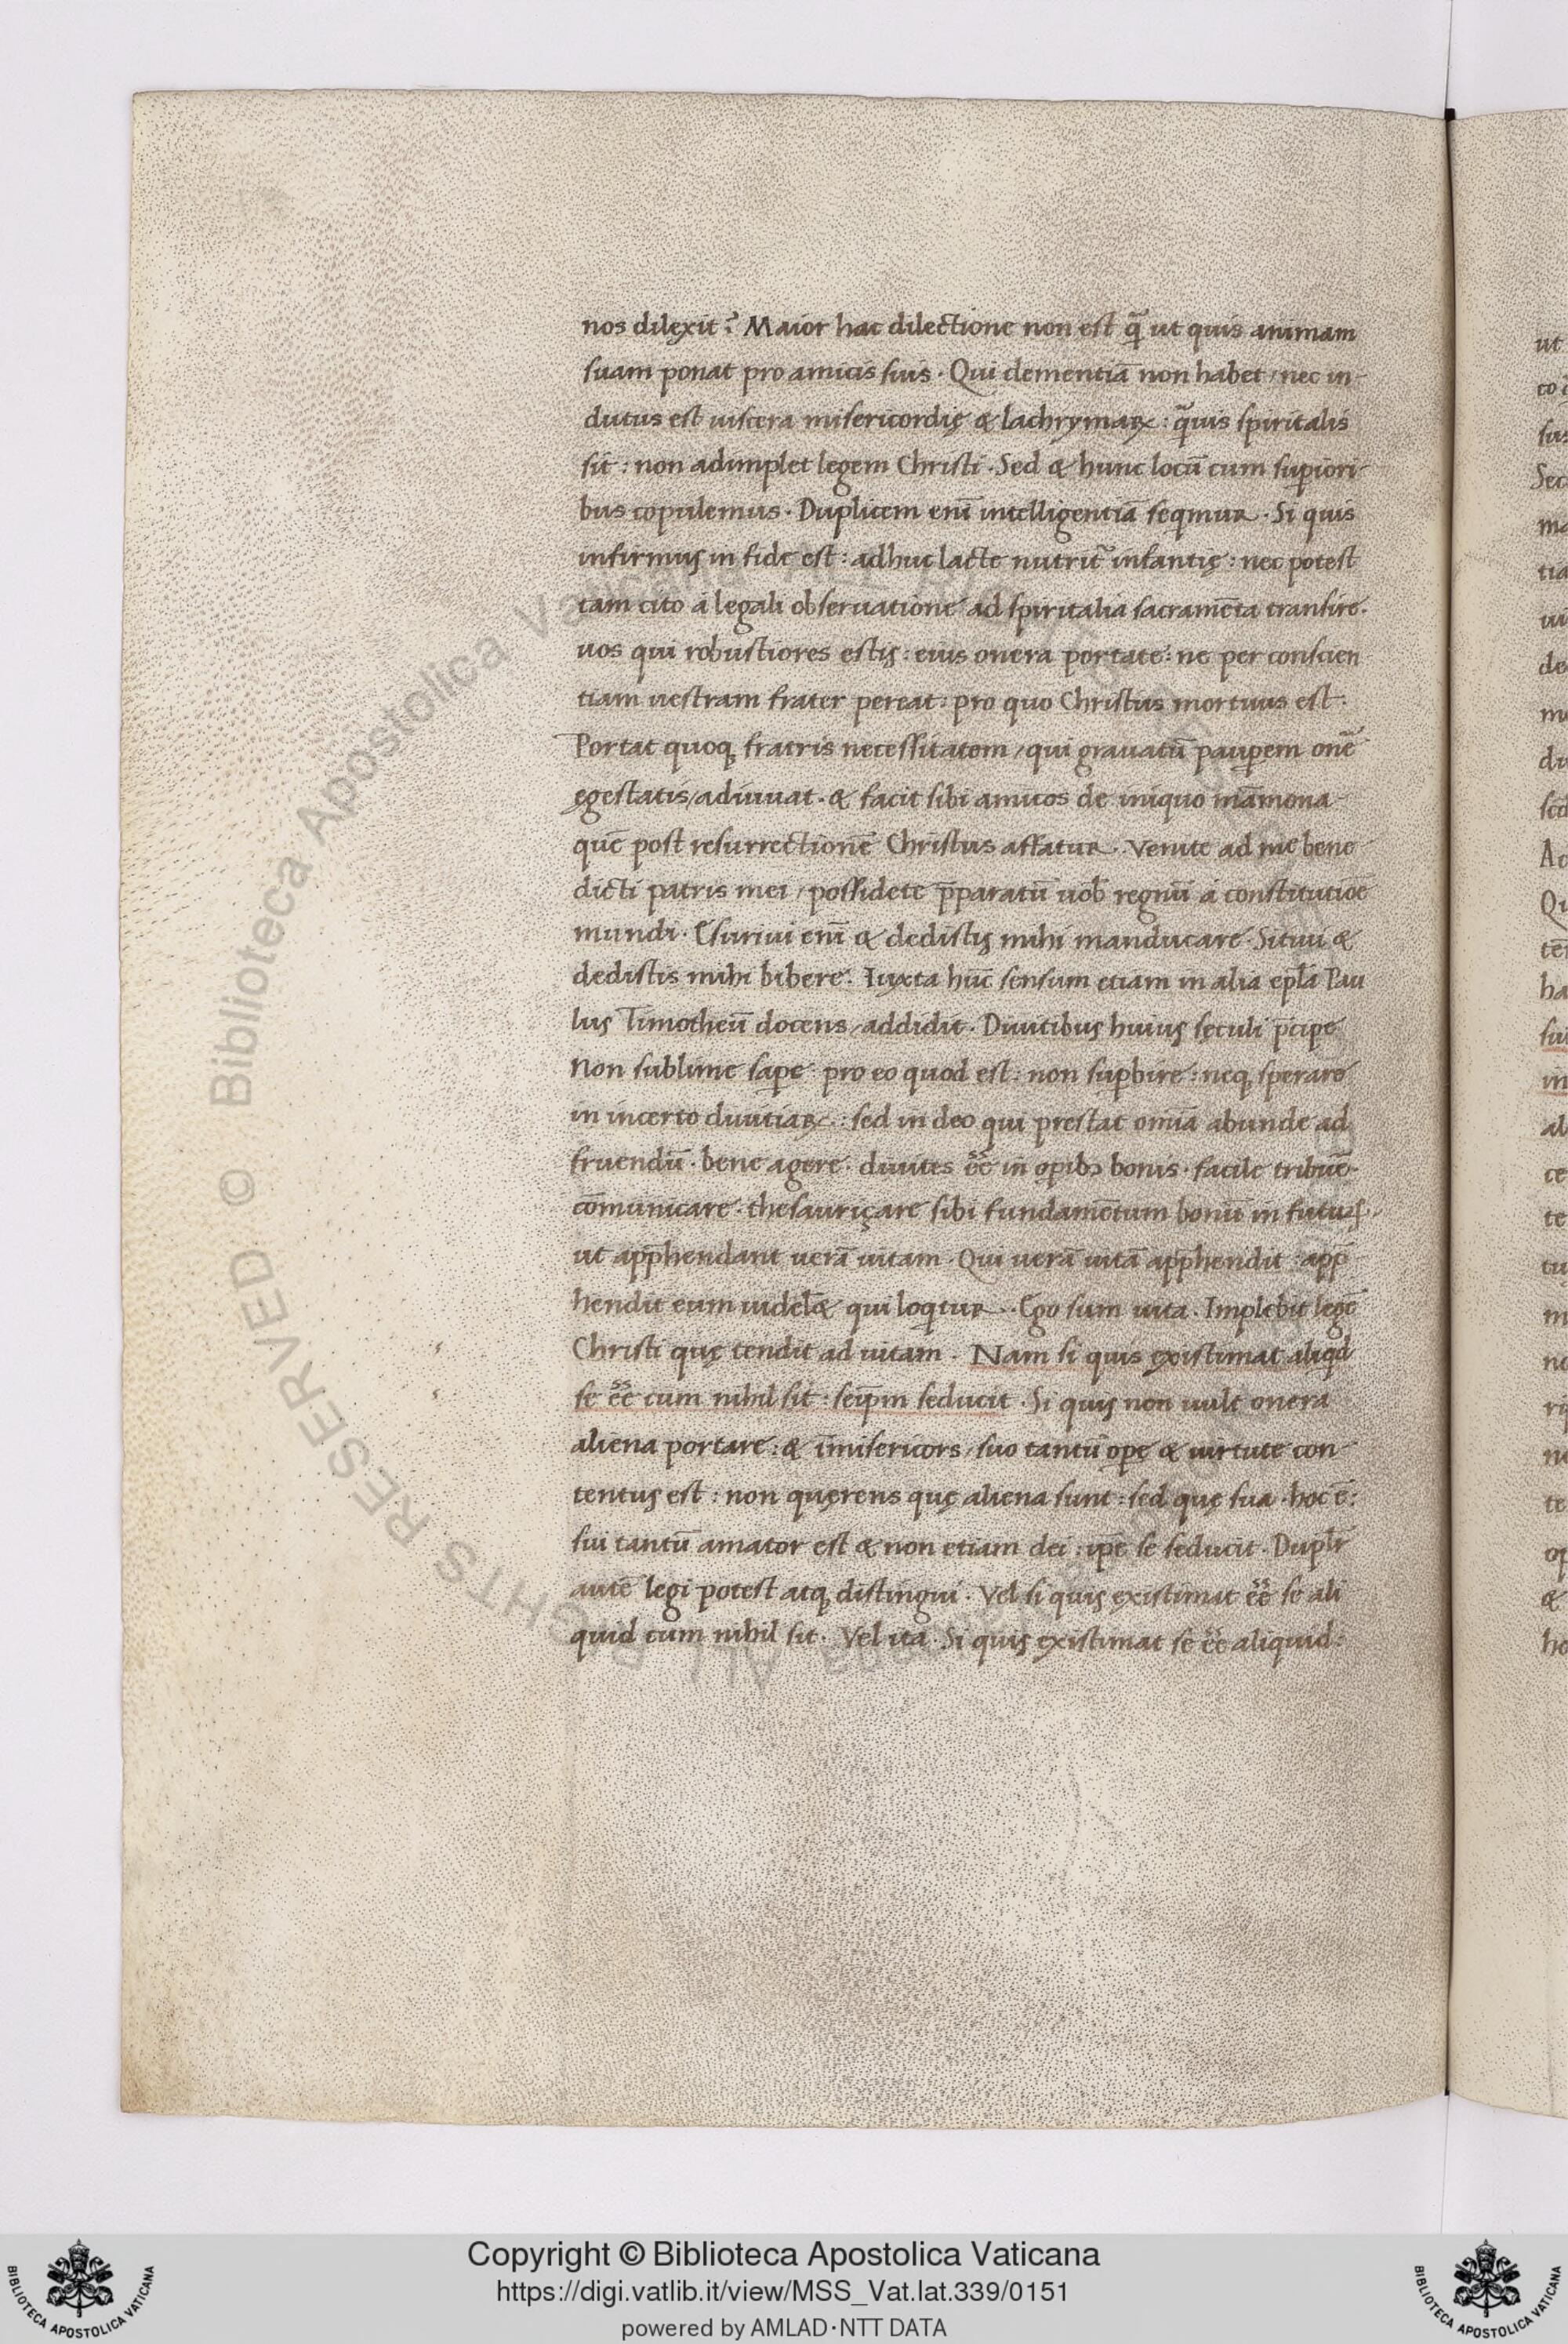 nos dilexit? Maior hac dilectione non est q̄ ut quis animam
suam ponat pro amicis suis. Qui clementiā non habet / nec in-
dutus est uiscera misericordię & lachrymaꝝ: q̄uis spiritalis
sit: non adimplet legem Christi. Sed & hunc locū cum supiori-
bus copulemus. Duplicem enī intelligentiā seqmur. Si quis
infirmus in fide est: adhuc lacte nutrit̄ infantię: nec potest
tam cito a legali obseruatione ad spiritalia sacramēta transire.
uos qui robustiores estis: eius onera portate: ne per conscien
tiam uestram frater pereat: pro quo Christus mortuus est.
Portat quoq; fratris necessitatem / qui grauatū paupem onē
egestatis / adiuuat. & facit sibi amicos de iniquo māmona
quē post resurrectionē Christus affatur. Venite ad me bene
dicti patris mei / possidete p̄paratū uob̄ regnū a constitutiōe
mundi. Esuriui enī & dedistis mihi manducare. Sitiui &
dedistis mihi bibere. Iuxta hūc sensum etiam in alia epl̄a Pau
lus Timotheū docens / addidit. Diuitibus huius sęculi p̄cipe
Non sublime sape: pro eo quod est: non supbire: neq; sperare
in incerto diuitiaꝝ: sed in deo qui prestat omīa abunde ad
fruendū. bene agere. diuites ēē in opibꝫ bonis. facile tribuē.
cōmunicare. thesauriçare sibi fundamētum bonū in futuꝝ.
ut app̄hendant uerā uitam. Qui uerā uitā app̄hendit: app̄
hendit eum uidel& qui loqtur. Ego sum uita. Implebit legē
Christi quę tendit ad uitam. Nam si quis existimat aliqd
se ēē cum nihil sit: seip̄m seducit. Si quis non uult onera
aliena portare: & īmisericors / suo tantū ope & uirtute con-
tentus est: non quęrens quę aliena sunt: sed quę sua. hoc ē:
sui tantū amator est & non etiam dei: ip̄e se seducit. Dupl̄r
autē legi potest atq; distingui. Vel si quis existimat ēē se ali
quid cum nihil sit. Vel ita. Si quis existimat se ēē aliquid:
Copyright © Biblioteca Apostolica Vaticana
https://digi.vatlib.it/view/MSS_Vat.lat.339/0151
powered by AMLAD·NTT DATA